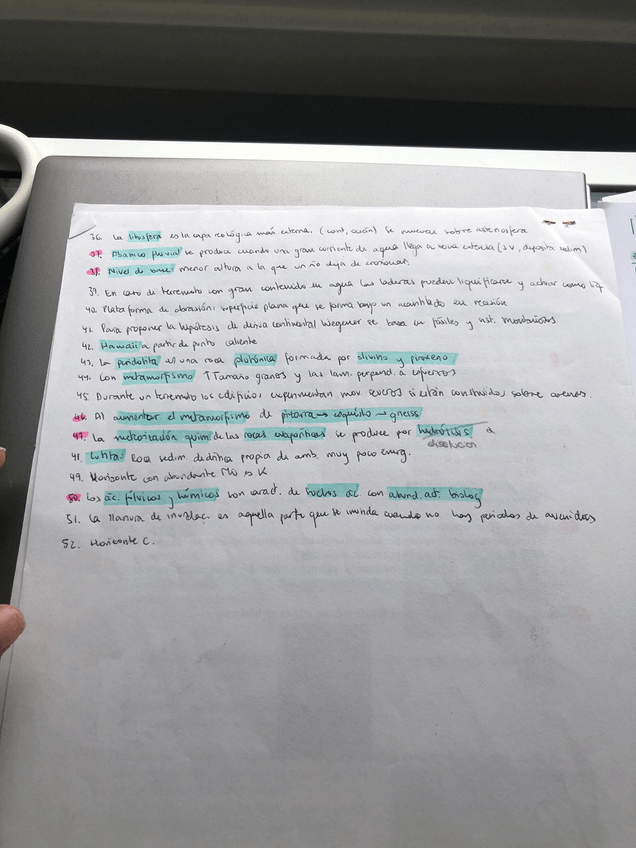 36. La litosfera es la capa reológica más externa. (cont, oceán) Se mueven sobre astenosfera
37. Abanico fluvial se produce cuando una gran corriente de agua llega a zona extensa (↓v, deposita sedim)
38. Nivel de base: menor altura a la que un río deja de erosionar.
39. En caso de terremoto con gran contenido en agua las laderas pueden liquificarse y actuar como
40. Plataforma de abrasión: superficie plana que se forma bajo un acantilado en recesión
41. Para proponer la hipótesis de deriva continental Wegener se basa en fósiles y
42. Hawaii a partir de punto caliente
43. La peridotita es una roca plutónica formada por olivino y piroxeno
44. Con metamorfismo ↑Tamaño granos y las lam. perpend. a esfuerzos
45. Durante un terremoto los edificios experimentan mov. si están construidos sobre arenas.
46. Al aumentar el metamorfismo de pizarra → esquisto → gneiss
47. La meteorización quím. de las rocas evaporíticas se produce por hidrólisis. a
disolución
48. Lutita: Roca sedim. detrítica propia de amb. muy poco energ.
49. Horizonte con abundante
50. Los ác. fúlvicos y húmicos son caract. de suelos ác. con abund. act. biolog
51. La llanura de inundac. es aquella parte que se inunda cuando no hay periodos de avenidas
52. Horizonte C.